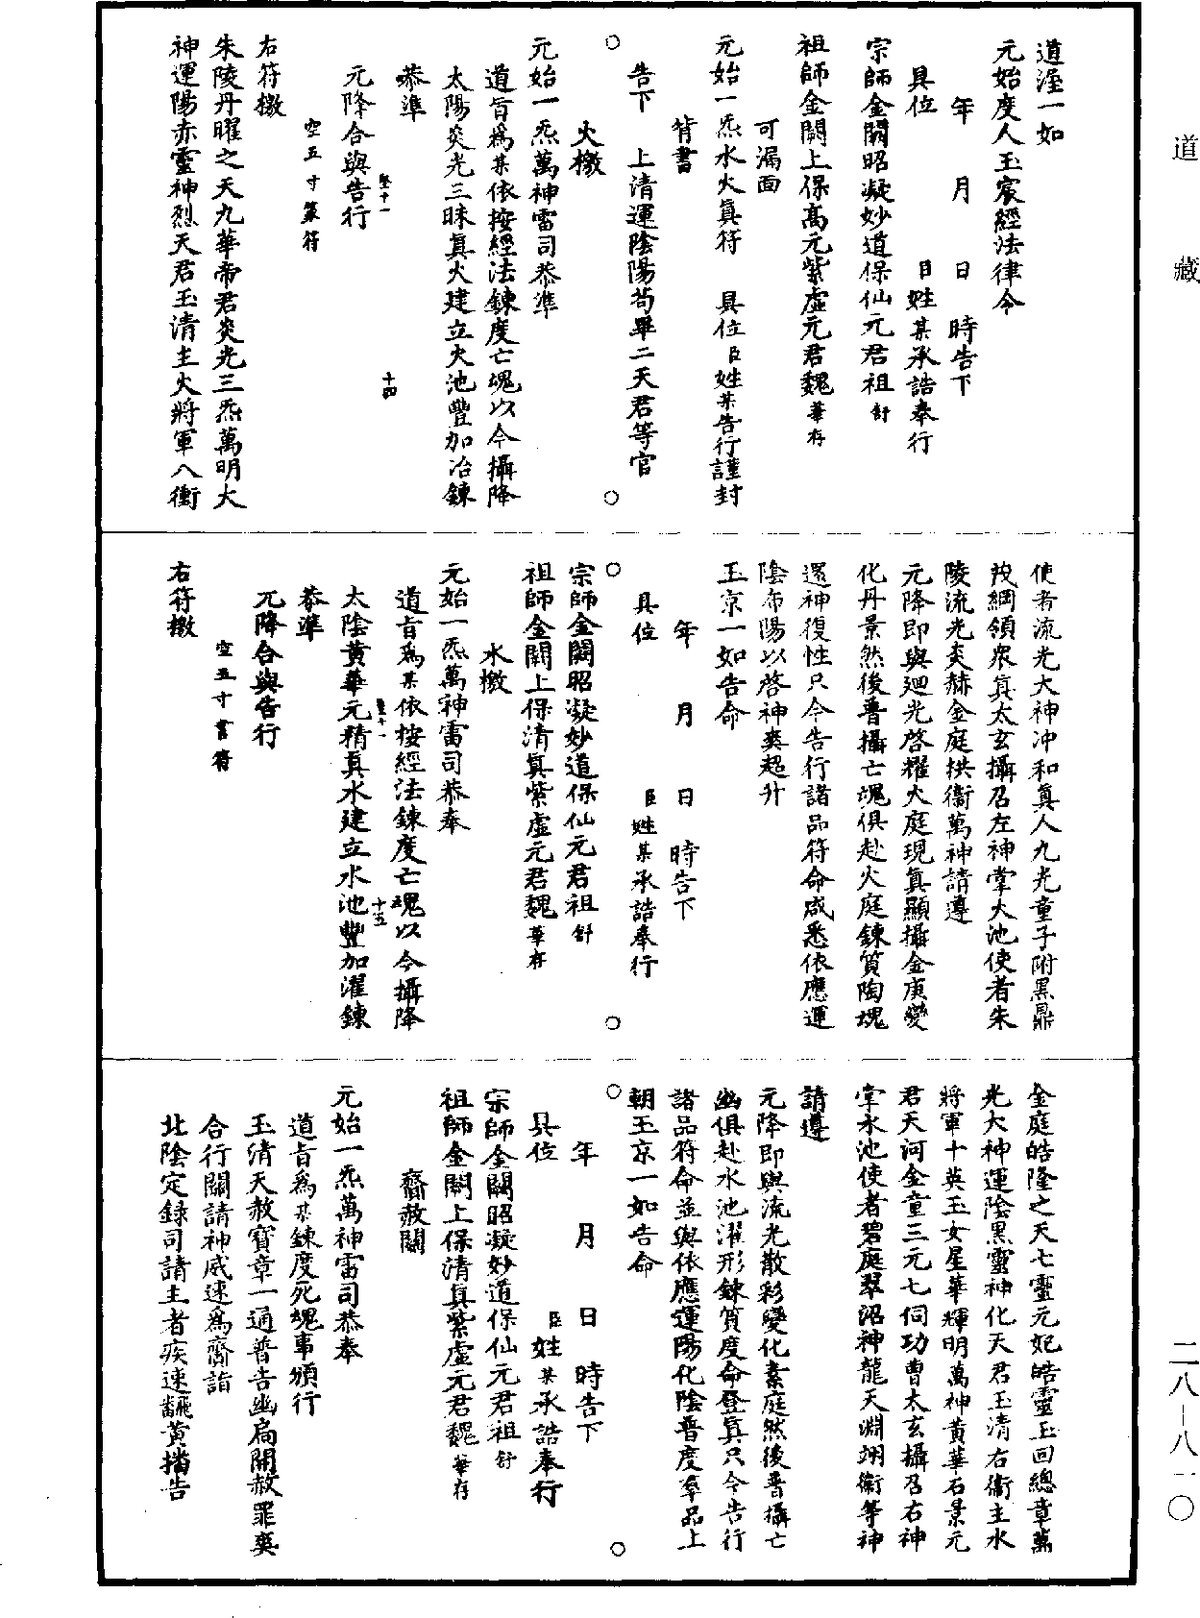 道藏
道淫一如
元始度人玉宸經法律令
年　月　日　時告下
具位　臣姓某承誥奉行
宗師金闕昭凝妙道保仙元君祖舒
祖師金闕上保高元紫虛元君魏華存
可漏面
元始一炁水火眞符　具位臣姓某告行謹封
背書
告下　上清運陰陽苟畢二天君等官
○　○
火檄
元始一炁萬神雷司恭準
道旨爲某依按經法鍊度亡魂以今攝降
太陽炎光三昧眞火建立火池豐加冶鍊
恭準　十四
元降合與告行
空五寸篆符
右符檄
朱陵丹曜之天九華帝君炎光三炁萬明大
神運陽赤靈神烈天君玉清主火將軍八衝
使者流光大神冲和眞人九光童子附黑鼎
拔綱領衆眞太玄攝召左神掌火池使者朱
陵流光炎赫金庭拱衞萬神請遵
元降即與廻光啓耀火庭現眞顯攝金庚變
化丹景然後普攝亡魂俱赴火庭鍊質陶魂
還神復性只今告行諸品符命咸悉依應運
陰布陽以啓神爽超升
玉京一如告命
年　月　日　時告下
具位　臣姓某承誥奉行
○　○
宗師金闕昭凝妙道保仙元君祖舒
祖師金闕上保清眞紫虛元君魏華存
水檄
元始一炁萬神雷司恭奉
道旨爲某依按經法鍊度亡魂以今攝降
十五
太陰黄華元精眞水建立水池豐加濯鍊
恭準
元降合與告行
空五寸書符
右符檄
金庭皓隆之天七靈元妃皓靈玉回總章萬
光大神運陰黑靈神化天君玉清右衞主水
將軍十英玉女星華輝明萬神黄華石景元
君天河金童三元七伺功曹太玄攝召右神
掌水池使者碧庭翠沼神龍天淵翊衞等神
請遵
元降即與流光散彩變化素庭然後普攝亡
幽俱赴水池濯形鍊質度命登眞只今告行
諸品符命並與依應運陽化陰普度率品上
朝玉京一如告命
○　○
年　月　日　時告下
具位　臣姓某承誥奉行
宗師金闕昭凝妙道保仙元君祖舒
祖師金闕上保清眞紫虛元君魏華存
齎赦關
元始一炁萬神雷司恭奉
道旨爲某鍊度死魂事頒行
玉清天赦寶章一通普告幽扃開赦罪爽
合行關請神威速爲齎詣
北陰定録司請主者疾速飜黄擋告
二八－八一〇